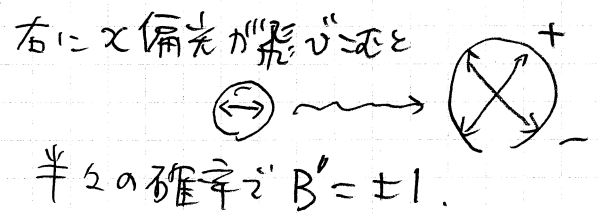 右に x 偏光が飛びこむと
+
-
半々の確率で B' = ±1.